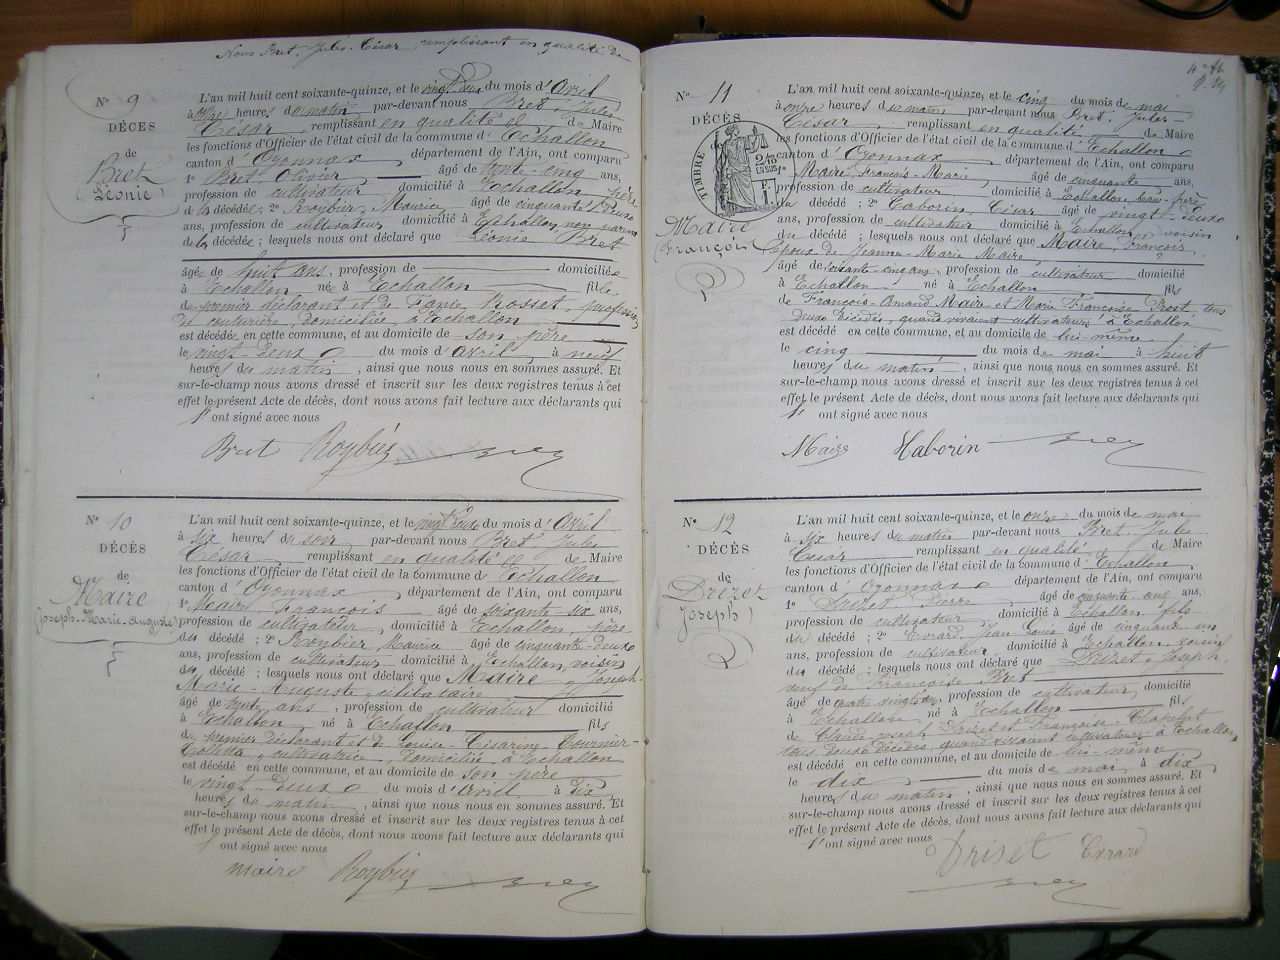 Nous Bret, Jules-César, remplissant en qualité de
N° 9
DÉCÈS
de
Bret
Léonie
L'an mil huit cent soixante-quinze, et le vingt deux du mois d'Avril
à onze heures du matin par-devant nous Bret, Jules
César remplissant en qualité de Maire
les fonctions d'Officier de l'état civil de la commune d'Echallon
canton d'Oyonnax, département de l'Ain, ont comparu
1° Bret Olivier âgé de trente-cinq ans,
profession de cultivateur domicilié à Echallon, père
de la décédée; 2° Roybier, Maurice âgé de cinquante-deux
ans, profession de cultivateur domicilié à Echallon, non parent
de la décédée; lesquels nous ont déclaré que Léonie Bret
âgée de huit ans, profession de domiciliée
à Echallon née à Echallon fille
de premier déclarant et de Fanie Rosset, profession
de couturière, domiciliée à Echallon
est décédée en cette commune, et au domicile de son père
le vingt-deux du mois d'avril à neuf
heures du matin, ainsi que nous nous en sommes assuré. Et
sur-le-champ nous avons dressé et inscrit sur les deux registres tenus à cet
effet le présent Acte de décès, dont nous avons fait lecture aux déclarants qui
ont signé avec nous
Bret Roybier Bret
N° 10
DÉCÈS
de
Maire
(Joseph-Marie-Auguste)
L'an mil huit cent soixante-quinze, et le vingt deux du mois d'Avril
à six heures du soir par-devant nous Bret Jules
César remplissant en qualité de Maire
les fonctions d'Officier de l'état civil de la commune de Echallon
canton d'Oyonnax, département de l'Ain, ont comparu
1° Maire François âgé de soixante-six ans,
profession de cultivateur, domicilié à Echallon, père
du décédé; 2° Roybier Maurice âgé de cinquante-deux
ans, profession de cultivateur domicilié à Echallon, voisin
du décédé; lesquels nous ont déclaré que Maire, Joseph-
Marie-Auguste célibataire
âgé de trente ans, profession de cultivateur domicilié
à Echallon né à Echallon fils
de premier déclarant et de Louise-Césarine Tournier-
Colletta, cultivatrice, domiciliée à Echallon
est décédé en cette commune, et au domicile de son père
le vingt-deux du mois d'avril à dix
heures du matin, ainsi que nous nous en sommes assuré. Et
sur-le-champ nous avons dressé et inscrit sur les deux registres tenus à cet
effet le présent Acte de décès, dont nous avons fait lecture aux déclarants qui
ont signé avec nous
Maire Roybier Bret
N° 11
DÉCÈS
de
TIMBRE
Maire
(François)
L'an mil huit cent soixante-quinze, et le cinq du mois de mai
à onze heures du matin par-devant nous Bret, Jules-
César remplissant en qualité de Maire
les fonctions d'Officier de l'état civil de la commune d'Echallon
canton d'Oyonnax département de l'Ain, ont comparu
1° Maire, François-Marie âgé de cinquante ans,
profession de cultivateur domicilié à Echallon, beau-frère
du décédé; 2° Haborin, César âgé de vingt-deux
ans, profession de cultivateur domicilié à Echallon, voisin
du décédé; lesquels nous ont déclaré que Maire, François,
Epoux de Jeanne-Marie Maire
âgé de soixante-cinq ans, profession de cultivateur domicilié
à Echallon né à Echallon fils
de François-Amand Maire et Marie Françoise Prost tous
deux décédés, quand vivaient cultivateurs à Echallon
est décédé en cette commune, et au domicile de lui-même
le cinq du mois de mai à huit
heures du matin, ainsi que nous nous en sommes assuré. Et
sur-le-champ nous avons dressé et inscrit sur les deux registres tenus à cet
effet le présent Acte de décès, dont nous avons fait lecture aux déclarants qui
ont signé avec nous
Maire Haborin Bret
N° 12
DÉCÈS
de
Drizet
(Joseph)
L'an mil huit cent soixante-quinze, et le onze du mois de mai
à six heures du matin par-devant nous Bret, Jules
César remplissant en qualité de Maire
les fonctions d'Officier de l'état civil de la commune d'Echallon
canton d'Oyonnax département de l'Ain, ont comparu
1° Drizet Pierre âgé de ans,
profession de cultivateur domicilié à Echallon fils
du décédé; 2° Evrard, Jean Louis âgé de cinquante un
ans, profession de cultivateur domicilié à Echallon, voisin
du décédé; lesquels nous ont déclaré que Drizet, Joseph,
veuf de Françoise Bret
âgé de quatre-vingt-dix, profession de cultivateur domicilié
à Echallon né à Echallon fils
de Claude-Joseph Drizet et Françoise Chapelut
tous deux décédés, quand vivaient cultivateurs à Echallon,
est décédé en cette commune, et au domicile de lui-même
le dix du mois de mai à dix
heures du matin, ainsi que nous nous en sommes assuré. Et
sur-le-champ nous avons dressé et inscrit sur les deux registres tenus à cet
effet le présent Acte de décès, dont nous avons fait lecture aux déclarants qui
ont signé avec nous
Driset Evrard
Bret